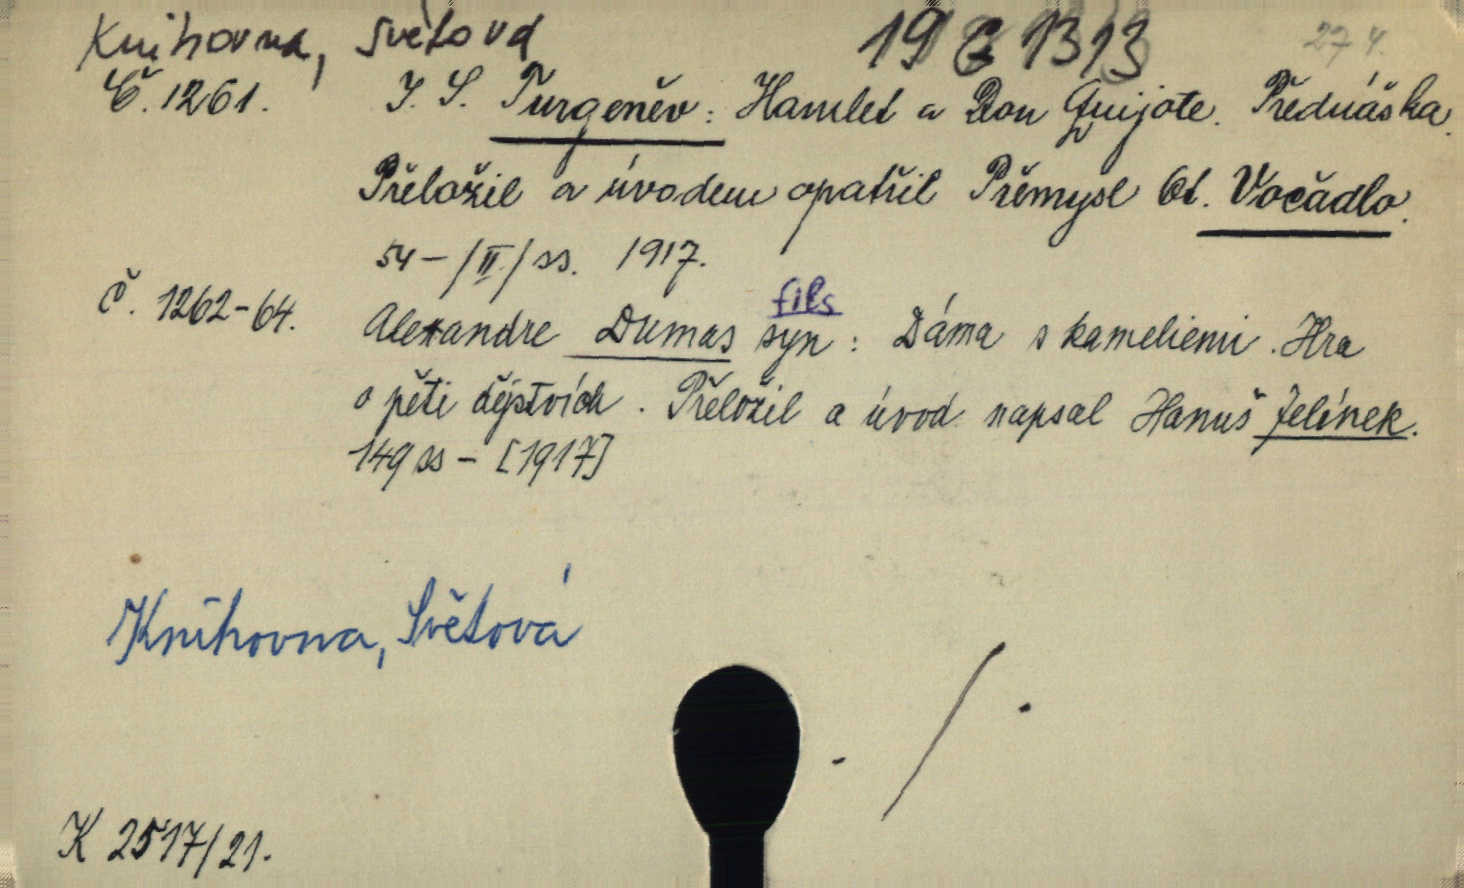 Knihovna, světová 19 C 1313 27 4.
Č. 1261. I. S. Turgeněv: Hamlet a Don Quijote. Přednáška.
Přeložil a úvodem opatřil Přemysl Ot. Vočadlo.
54 – /II/ ss. 1917.
fils
č. 1262-64. Alexandre Dumas syn: Dáma s kameliemi. Hra
o pěti dějstvích. Přeložil a úvod napsal Hanuš Jelínek.
149 ss – [1917]
Knihovna, Světová
./.
K 2517/21.